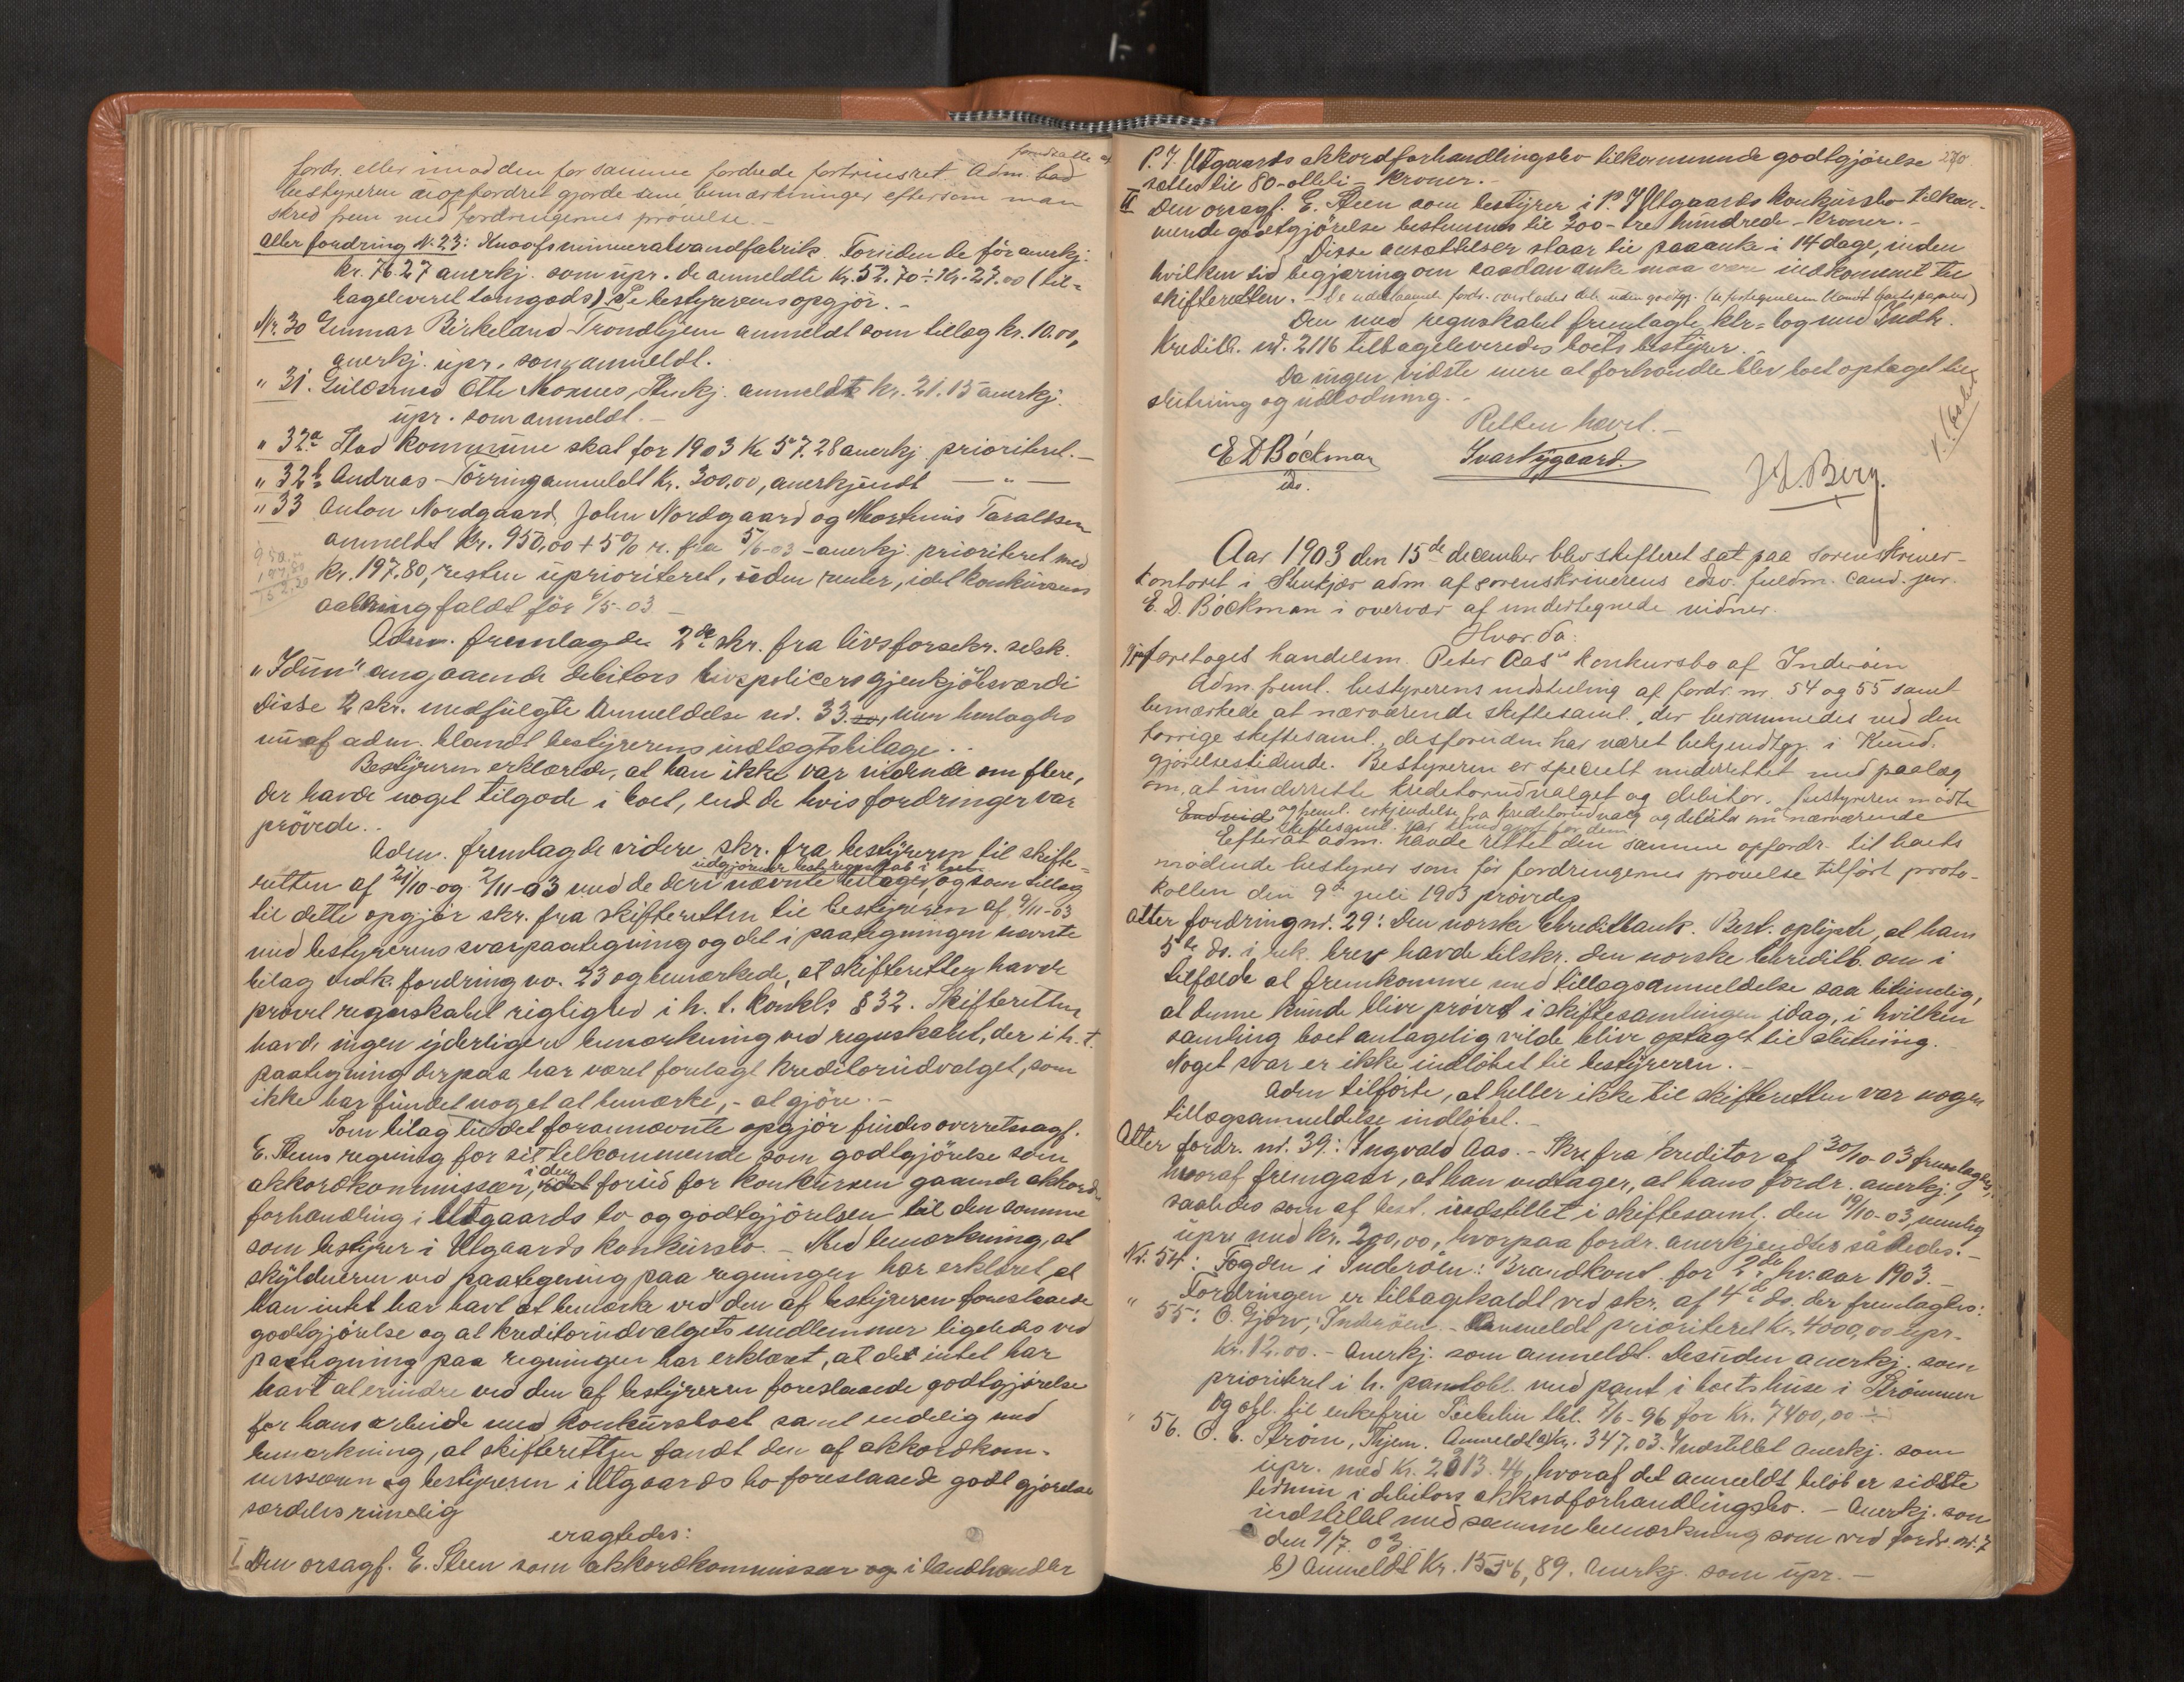 fordr. eller imod den for samme fordrede fortrinsret. Adm. bad
bestyreren uopfordret gjorde sine bemærkninger eftersom man
skred frem med fordringernes prøvelse.-
Atter fordring N. 23: Knoofs mineralvandfabrik. Foruden de før anerkj.
kr. 76.27 anerkj. som upr. de anmeldte Kr. 52.70 ÷ Kr. 27.00 (til-
bageleveret tomgods). Se bestyrerens opgjør.-
Nr. 30 Gunnar Birkeland Trondhjem anmeldt som tillæg kr. 10.00,
anerkj. upr. som anmeldt.
" 31. Guldsmed Otto Moxnes, Stenkj. anmeldt kr. 21.15 anerkj.
upr. som anmeldt.-
" 32a Stod kommune skat for 1903 Kr 57.28 anerkj. prioriteret.-
" 32b Andreas Tørring anmeldt Kr. 300,00, anerkjendt — " —
" 33 Anton Nordgaard, John Nordgaard og Mortinus Taraldsen
anmeldt Kr. 950,00 + 5% r. fra 5/6-03 - anerkj. prioriteret med
kr. 197.80, resten uprioriteret, uden renter, idet konkursens
aabning faldt før 6/5-03 -
950.-
197.80
752.20
Adm. fremlagde 2de skr. fra livsforsekr. selsk.
"Idun" angaaende debitors livspolicers gjenkjøbsværdi
Disse 2 skr. medfulgte Anmeldelse nr. 33, men henlagdes
nu af adm. blandt bestyrerens indlægsbilage..
Bestyreren erklærede, at han ikke var vidende om flere,
der havde noget tilgode i boet, end de hvis fordringer var
prøvede..
Adm. fremlagde videre skr. fra bestyreren til skifte-
retten af 21/10- og 2/11-03 med de deri nævnte bilager og som tillæg
udgjørende bestyregnskab i boet
til dette opgjør skr. fra skifteretten til bestyreren af 9/11-03
med bestyrerens svarpaategning og det i paategningen nævnte
bilag vedk. fordring no. 23 og bemærkede, at skifteretten havde
prøvet regnskabet rigtighed i h. t. konkl. § 32. Skifteretten
havde ingen yderligere bemærkning ved regnskabet, der i h. t.
paategning derpaa har været forelagt kreditorudvalget, som
ikke har fundet noget at bemærke,- at gjøre.-
Som bilag til det forannævnte opgjør findes overretssagf.
E. Steens regning for sit tilkommende som godtgjørelse som
akkordkommissær, i den forud for konkursen gaaende akkord-
forhandling i Utgaards bo og godtgjørelsen til den samme
som bestyrer i Utgaards konkursbo.- Med bemærkning, at
skyldneren ved paategning paa regningen har erklæret, at
han intet har havt at bemærke ved den af bestyreren foreslaaede
godtgjørelse og at kreditorudvalgets medlemmer ligeledes ved
paategning paa regningen har erklæret, at det intet har
havt at erindre ved den af bestyreren foreslaaede godtgjørelse
for hans arbeide med konkursboet samt endelig med
bemærkning, at skifteretten fandt den af akkordkom-
missæren og bestyreren i Utgaards bo foreslaaede godtgjørelse
særdeles rimelig
eragtedes:
I Den orsagf. E. Steen som akkordkommissær og i landhandler
270
P. J. Utgaards akkordforhandlingsbo tilkommende godtgjørelse
sættes til 80-otteti- kroner.-
II Den orsagf. E. Steen som bestyrer i P. J Utgaards konkursbo tilkom-
mende godtgjørelse bestemmes til 300-tre hundrede- kroner.-
Disse ansættelser staar til paaanke i 14 dage, inden
hvilken tid begjæring om saadan anke maa være indkommet til
skifteretten.-
Den med regnskabet fremlagte ktr=bog med Indh.
Kreditb. nr. 2116 tilbageleveredes boets bestyrer.
Da ingen vidste mere at forhandle blev boet optaget til
slutning og udlodning.-
Retten hævet.-
E D Bóckman Ivar Nygaard. J. L. Berg.
Aar 1903 den 15de december blev skifteret sat paa sorenskriver-
kontoret i Stenkjær adm. af sorenskriverens edsv. fuldm. cand. jur.
E. D. Bóckman i overvær af undertegnede vidner.
Hvor da:
foretoges handelsm. Peter Aas's konkursbo af Inderøen
Adm. freml. bestyrerens indstilling af fordr. nr. 54 og 55 samt
bemærkede at nærværende skiftesaml., der berammedes ved den
forrige skiftesaml., desforuden har været bekjendtgj. i Kund-
gjørelsestidende. Bestyreren er specielt underrettet med paalæg
om, at underrette kreditorudvalget og debitor. Bestyreren mødte
og freml. erkjendelse fra kreditorudvalg og debitor om nærværende
skiftesaml. var kundgjort for dem.
Efterat adm. havde rettet den samme opfordr. til boets
mødende bestyrer som før fordringernes prøvelse tilført proto-
kollen den 9de juli 1903 prøvedes
Atter fordring nr. 29: Den norske kreditbank. Best. oplyste, at han
5te ds. i rek. brev havde tilskr. den norske kreditb. om i
tilfælde at fremkomme med tillægsanmeldelse saa betimelig,
at denne kunde blive prøvet i skiftesamlingen idag, i hvilken
samling boet antagelig vilde blive optaget til slutning.
Noget svar er ikke indløbet til bestyreren.-
Adm tilførte, at heller ikke til skifteretten var nogen
tillægsanmeldelse indløbet.-
Atter fordr. nr. 39: Ingvald Aas.- Skr. fra kreditor af 30/10-03 fremlagdes,
hvoraf fremgaar, at han vedtager, at hans fordr. anerkj.,
saaledes som af best. indstillet i skiftesaml. den 19/10-03, nemlig
upr. med kr. 200,00, hvorpaa fordr. anerkjendtes således.-
Nr. 54: Fogden i Inderøen: Brandkont. for 2det hv.aar 1903.-
Fordringen er tilbagekaldt ved skr. af 4de ds. der fremlagdes:
" 55: O. Gjørv, Inderøen.- Anmeldt prioriteret Kr. 4000,00 upr.
Kr. 12.00.- Anerkj. som anmeldt. Desuden anerkj. som
prioriteret i h. pantobl. med pant i boets huse i Strømmen
Og obl. til enkefru tbl. 7/6-96 for Kr. 7400,00 ÷
" 56. O. E. Strøm, Thjem. Anmeldt a) Kr. 347.03. Indstillet anerkj. som
upr. med Kr. 2313.46, hvoraf det anmeldt beløb er sidste
termin i debitors akkordforhandlingsbo.- Anerkj. som
indstillet med samme bemærkning som ved fordr. nr. 7
den 9/7 03.
b) Anmeldt Kr. 1556,89. Anerkj. som upr.-